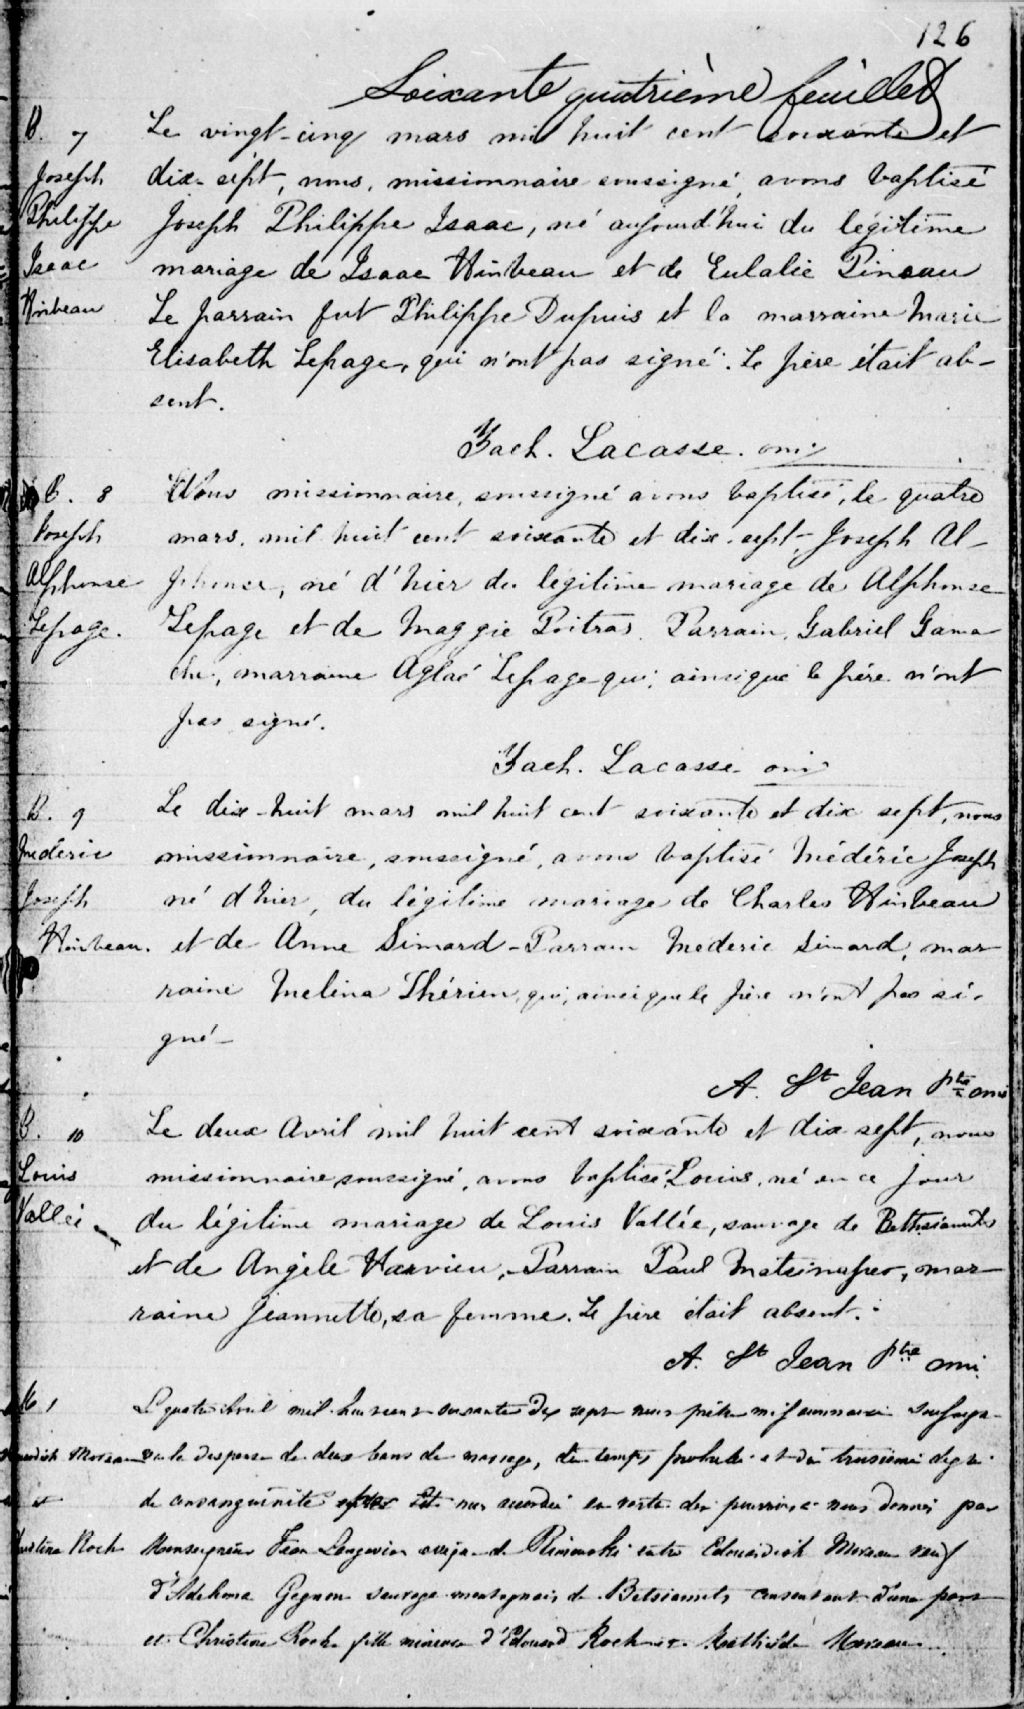 126
Soixante quatrième feuillet
B. 7
Joseph
Philippe
Isaac
Hinbeau
Le vingt-cinq mars mil huit cent soixante et
dix-sept, nous, missionnaire soussigné, avons baptisé
Joseph Philippe Isaac, né aujourd'hui du légitime
mariage de Isaac Hinbeau et de Eulalie Pineau
Le parrain fut Philippe Dupuis et la marraine Marie
Elisabeth Lepage, qui n'ont pas signé. Le père était ab-
sent.
Zach. Lacasse. omi
B. 8
Joseph
Alphonse
Lepage.
Nous missionnaire, soussigné avons baptisé, le quatre
mars, mil huit cent soixante et dix-sept, Joseph Al-
phonse, né d'hier du légitime mariage de Alphonse
Lepage et de Maggie Poitras. Parrain, Gabriel Gama
che, marraine Aglaé Lepage qui, ainsi que le père n'ont
pas signé.
Zach. Lacasse omi
B. 9
Médéric
Joseph
Hinbeau.
Le dix-huit mars mil huit cent soixante et dix sept, nous
missionnaire, soussigné, avons baptisé Médéric Joseph
né d'hier, du légitime mariage de Charles Hinbeau
et de Anne Simard - Parrain Mederic Simard, mar
raine Melina Thérien, qui, ainsi que le père n'ont pas si-
gné -
A. St Jean ptre omi
B. 10
Louis
Vallée
Le deux Avril mil huit cent soixante et dix sept, nous
missionnaire soussigné, avons baptisé Louis, né en ce jour
du légitime mariage de Louis Vallée, sauvage de Bethsiamits
et de Angèle Harvieu, - Parrain Paul mar-
raine Jeannette, sa femme. Le père était absent.
A. St Jean ptre omi
M 1
Moreau
et
Christina Roch
Le quatre Avril mil huit cent soixante Dix sept nous prêtre missionnaire soussigné
vu la dispense de deux bans de mariage, de temps prohibé et du troisième degré
de consanguinité nous accordée en vertu des pouvoirs à nous donnés par
Monseigneur Jean Langevin évêque de Rimouski entre Edouard Moreau veuf
Gagnon sauvage montagnais de Betsiamits consentant d'une part
et Christine Roch fille mineure d'Edouard Roch et de Mathilde Moreau